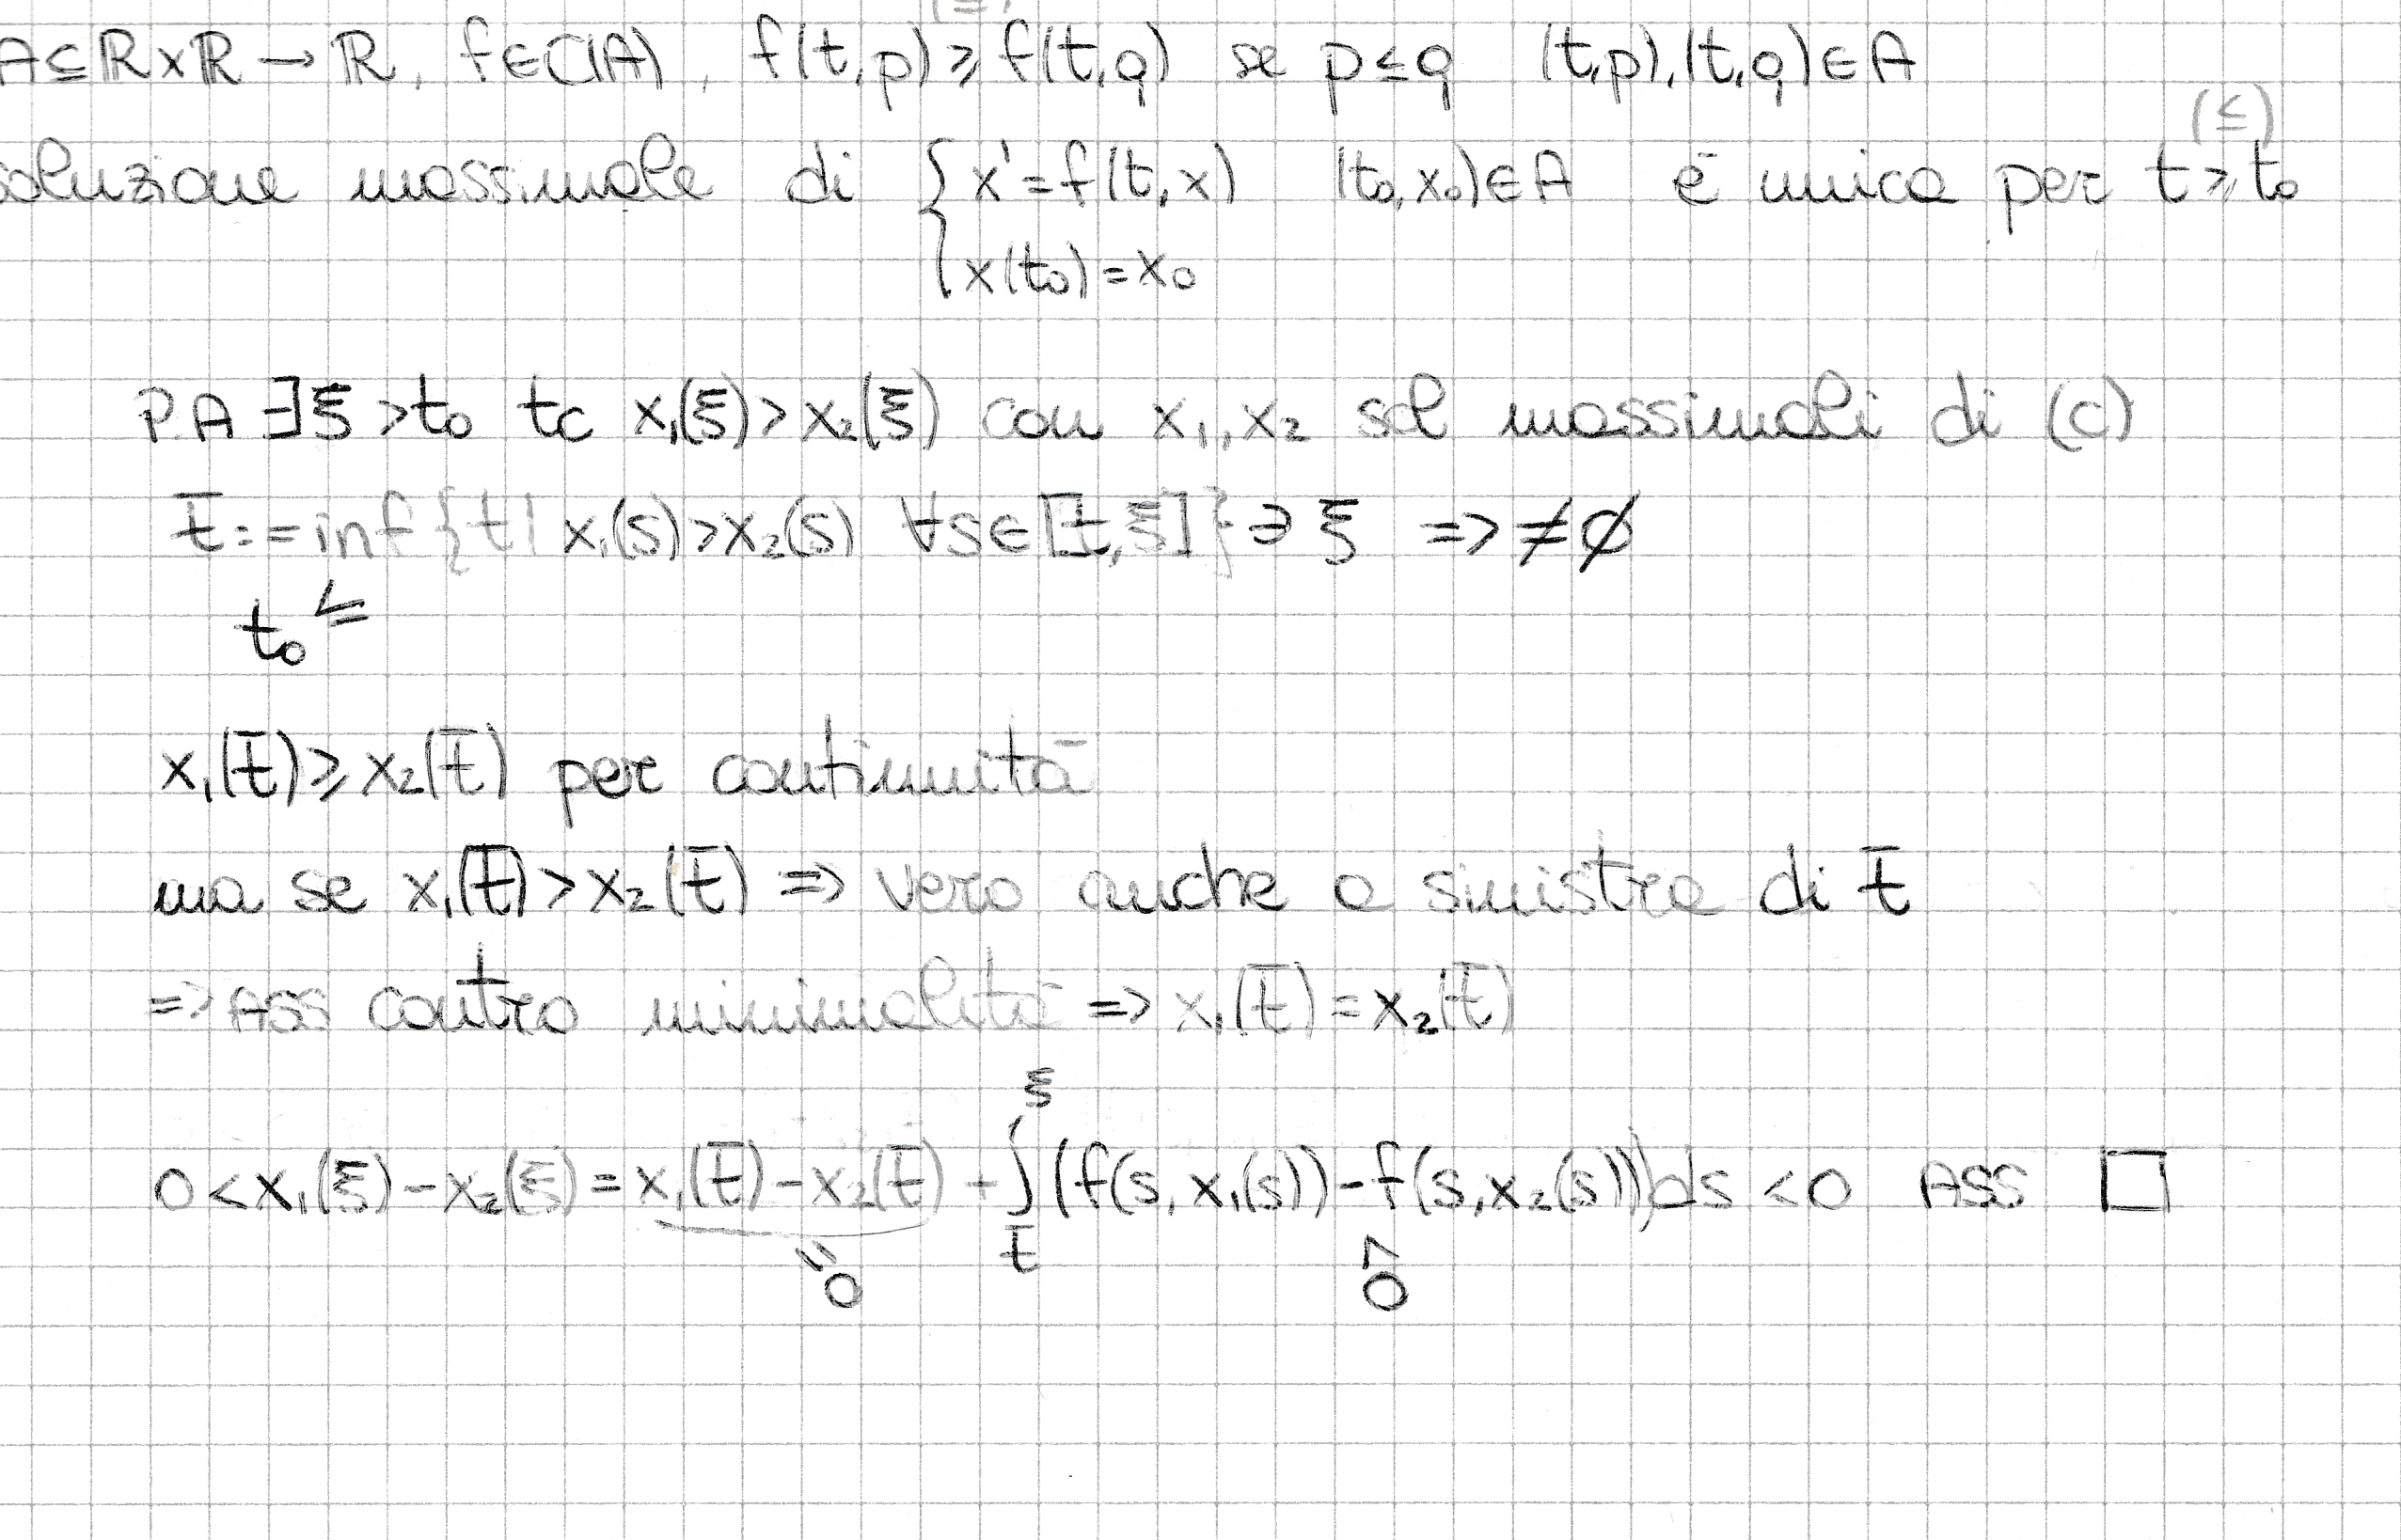 (≤)
A⊆ℝ×ℝ→ℝ, f∈C(A), f(t,p)⩾f(t,q) se p≤q (t,p),(t,q)∈A
(≤)
soluzione massimale di { x'=f(t,x) (t₀,x₀)∈A è unica per t⩾t₀
x(t₀)=x₀
P.A ∃ξ>t₀ tc x₁(ξ)>x₂(ξ) con x₁,x₂ sol massimali di (C)
t̄:=inf{t| x₁(s)>x₂(s) ∀s∈[t,ξ]}∋ξ => ≠∅
t₀ ≤
x₁(t̄)⩾x₂(t̄) per continuità
ma se x₁(t̄)>x₂(t̄) => vero anche a sinistra di t̄
=> Ass contro minimalità => x₁(t̄)=x₂(t̄)
0<x₁(ξ)-x₂(ξ)=x₁(t̄)-x₂(t̄)+∫_t̄^ξ(f(s,x₁(s))-f(s,x₂(s)))ds<0 ASS □
=0 ^0